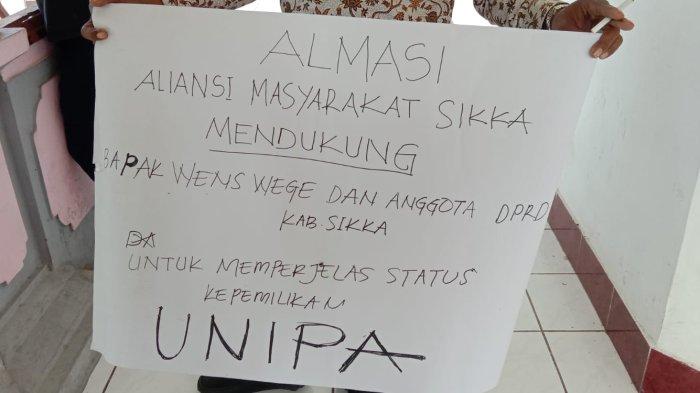 ALMASI
ALIANSI MASYARAKAT SIKKA
MENDUKUNG
BAPAK WENS WEGE DAN ANGGOTA DPRD
KAB. SIKKA
UNTUK MEMPERJELAS STATUS
KEPEMILIKAN
UNIPA